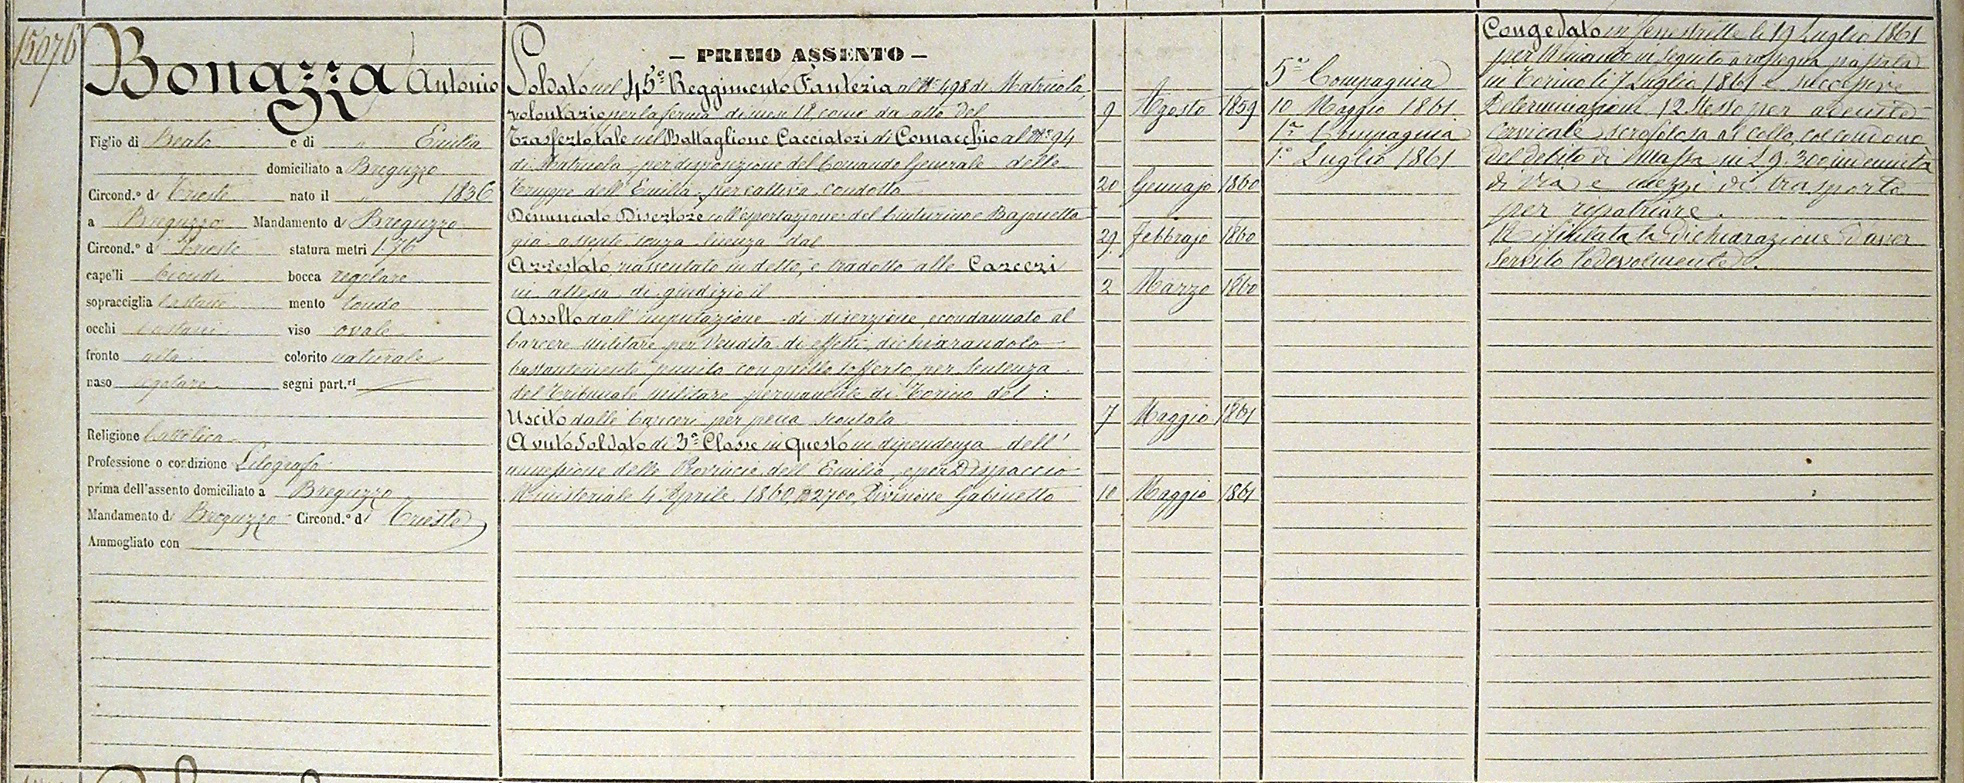 15076
Bonazza Antonio
Figlio di Beato e di " Emilia
domiciliato a Breguzzo
Circond.º di Trieste nato il " 1836
a Breguzzo Mandamento di Breguzzo
Circond.º di Trieste statura metri 1,76
capelli biondi bocca regolare
sopracciglia castane mento tondo
occhi castani viso ovale
fronte alta colorito naturale
naso regolare segni part.ri
Religione Cattolica
Professione o condizione Litografo
prima dell'assento domiciliato a Breguzzo
Mandamento di Breguzzo Circond.º di Trieste
Ammogliato con
— PRIMO ASSENTO —
Soldato nel 45º Reggimento Fanteria al Nº 498 di Matricola,
volontario per la ferma di mesi 18, come da atto del 9 Agosto 1859
Trasferto tale nel Battaglione Cacciatori di Comacchio al Nº 94
di Matricola, per disposizione del Comando Generale delle
truppe dell'Emilia, per cattiva condotta 20 Gennajo 1860
Denunciato Disertore coll'esportazione del Cinturino e Bajonetta
già assente senza licenza dal 29 Febbrajo 1860
Arrestato riassentato in detto, e tradotto alle Carceri
in attesa di giudizio il 2 Marzo 1860
Assolto dall'imputazione di diserzione, e condannato al
Carcere militare per vendita di effetti, dichiarandolo
bastantemente punito con quello sofferto, per Sentenza
del Tribunale militare permanente di Torino del :
Uscito dalle Carceri per pena scontata 7 Maggio 1861
Avuto Soldato di 3ª Classe in Questo in dipendenza dell'
annessione delle Provincie dell'Emilia, e per Dispaccio
Ministeriale 4 Aprile 1860, Nº 2700, Divisione Gabinetto 10 Maggio 1861
5ª Compagnia
10 Maggio 1861
1ª Compagnia
1º Luglio 1861
Congedato in Fenestrelle li 19 Luglio 1861
per Rimando in seguito a rassegna passata
in Torino li 7 Luglio 1861 e successiva
Determinazione 12 stesso per adenite
cervicale scrofolosa al collo, col condono
del debito di Massa in L 9. 30, indennità
di via e mezzi di trasporto
per ripatriare.
Rifiutata la Dichiarazione d'aver
servito lodevolmente.